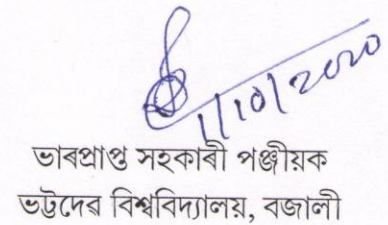 1/10/2020
ভাৰপ্ৰাপ্ত সহকাৰী পঞ্জীয়ক
ভট্টদেৱ বিশ্ববিদ্যালয়, বজালী